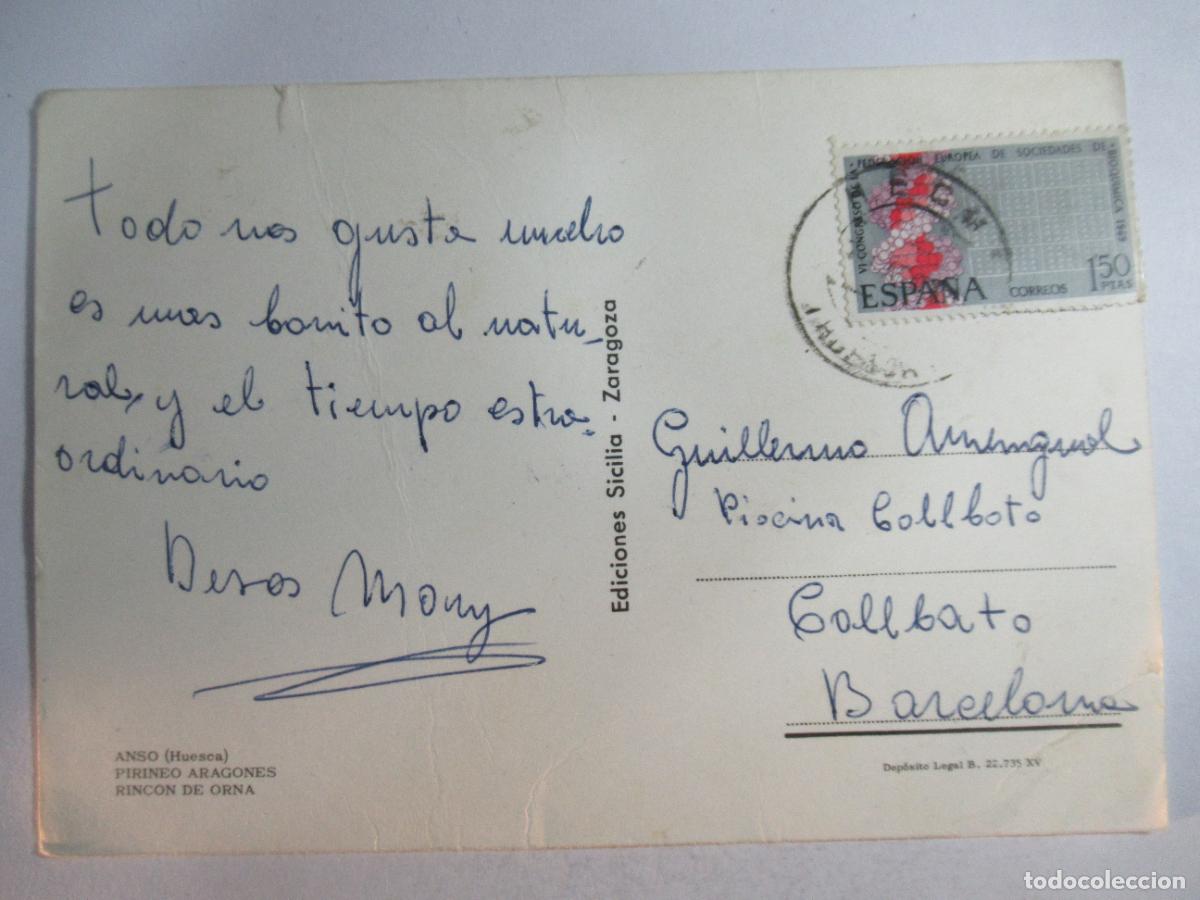 Todo nos gusta mucho
es mas bonito al natu-
ral, y el tiempo estra-
ordinario
Besos Mony
ANSO (Huesca)
PIRINEO ARAGONES
RINCON DE ORNA
Ediciones Sicilia - Zaragoza
VI CONGRESO DE LA FEDERACION EUROPEA DE SOCIEDADES DE BIOQUIMICA 1969
ESPAÑA
CORREOS
1'50
PTAS
Guillermo Amengual
Piscina Collboto
Collbato
Barcelona
Depósito Legal B. 22.735 XV
todocoleccion